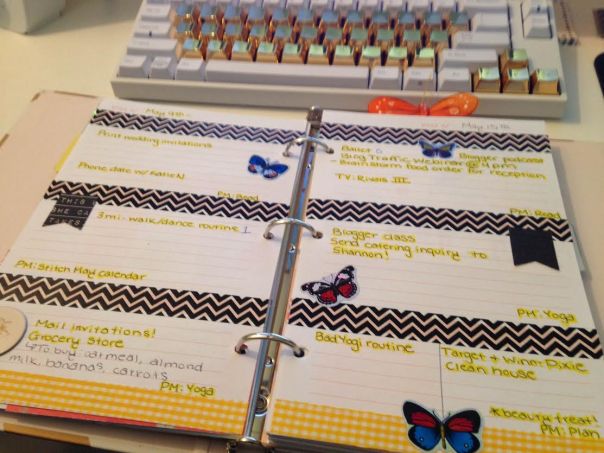 May 9th -
Print wedding invitations
Phone date w/ Katie N
PM: Read
THIS I
3 mi. walk/dance routine 1
PM: Stitch May calendar
Mail invitations!
Grocery store
To buy: oatmeal, almond
milk, bananas, carrots
PM: Yoga
May 15th
Ballet
Blogger podcast
Blog Traffic webinar @ 4pm
- Brainstorm food order for reception
TV: Rivals III
PM: Read
Blogger class
Send catering inquiry to
Shannon!
PM: Yoga
Bad Yogi routine
Target + Winn-Dixie
Clean house
*beauty treat!
PM: Plan